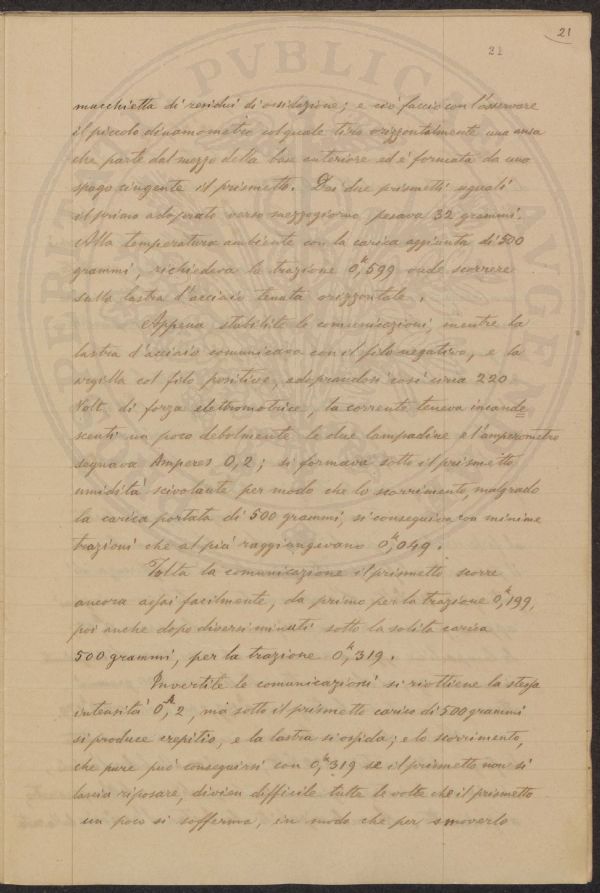 21
21
macchietta di residui di ossidazione; e ciò faccio con l'osservare
il piccolo dinamometro col quale tiro orizzontalmente una ansa
che parte dal mezzo della base anteriore ed è formata da uno
spago cingente il prismetto. Dei due prismetti uguali
il primo adoperato verso mezzogiorno pesava 32 grammi.
Alla temperatura ambiente con la carica aggiunta di 500
grammi, richiedeva la trazione 0,k599 onde scorrere
sulla lastra d'acciaio tenuta orizzontale.
Appena stabilite le comunicazioni, mentre la
lastra d'acciaio comunicava con il filo negativo, e la
argilla col filo positivo, adoprandosi così circa 220
Volt, di forza elettromotrice, la corrente teneva incande=
scenti un poco debolmente le due lampadine e l'amperometro
segnava Amperes 0,2; si formava sotto il prismetto
umidità scivolante per modo che lo scorrimento, malgrado
la carica portata di 500 grammi, si conseguiva con minime
trazioni che al più raggiungevano 0,k049.
Tolta la comunicazione il prismetto scorre
ancora assai facilmente, da primo per la trazione 0,k199,
poi anche dopo diversi minuti sotto la solita carica
500 grammi, per la trazione 0,k319.
Invertite le comunicazioni si riottiene la stessa
intensità 0,A2, mà sotto il prismetto carico di 500 grammi
si produce crepitio, e la lastra si ossida; e lo scorrimento,
che pure può conseguirsi con 0,k319 se il prismetto non si
lascia riposare, divien difficile tutte le volte che il prismetto
un poco si sofferma, in modo che per smuoverlo